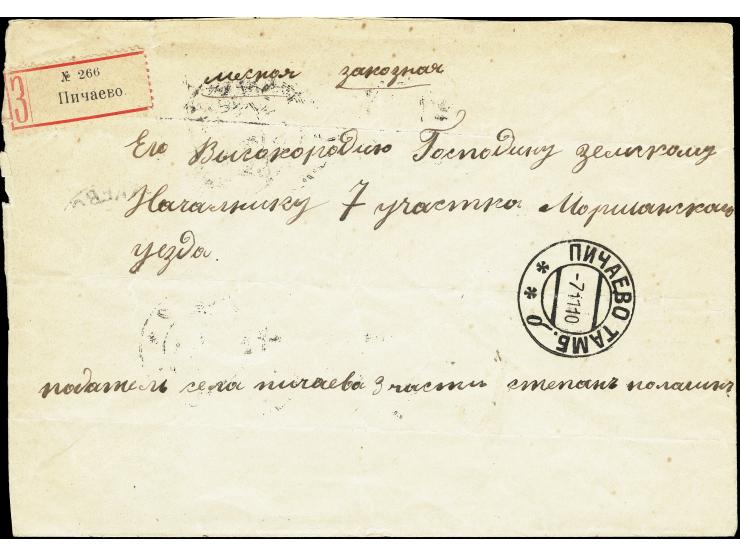 месная заказная
З
№ 266
Пичаево
Его Высокородию Господину земскому
Началнику 7 участка Моршанскаго
уезда.
ПИЧАЕВО ТАМБ.
-7 11 10
податель села пичаева 3 части степанъ